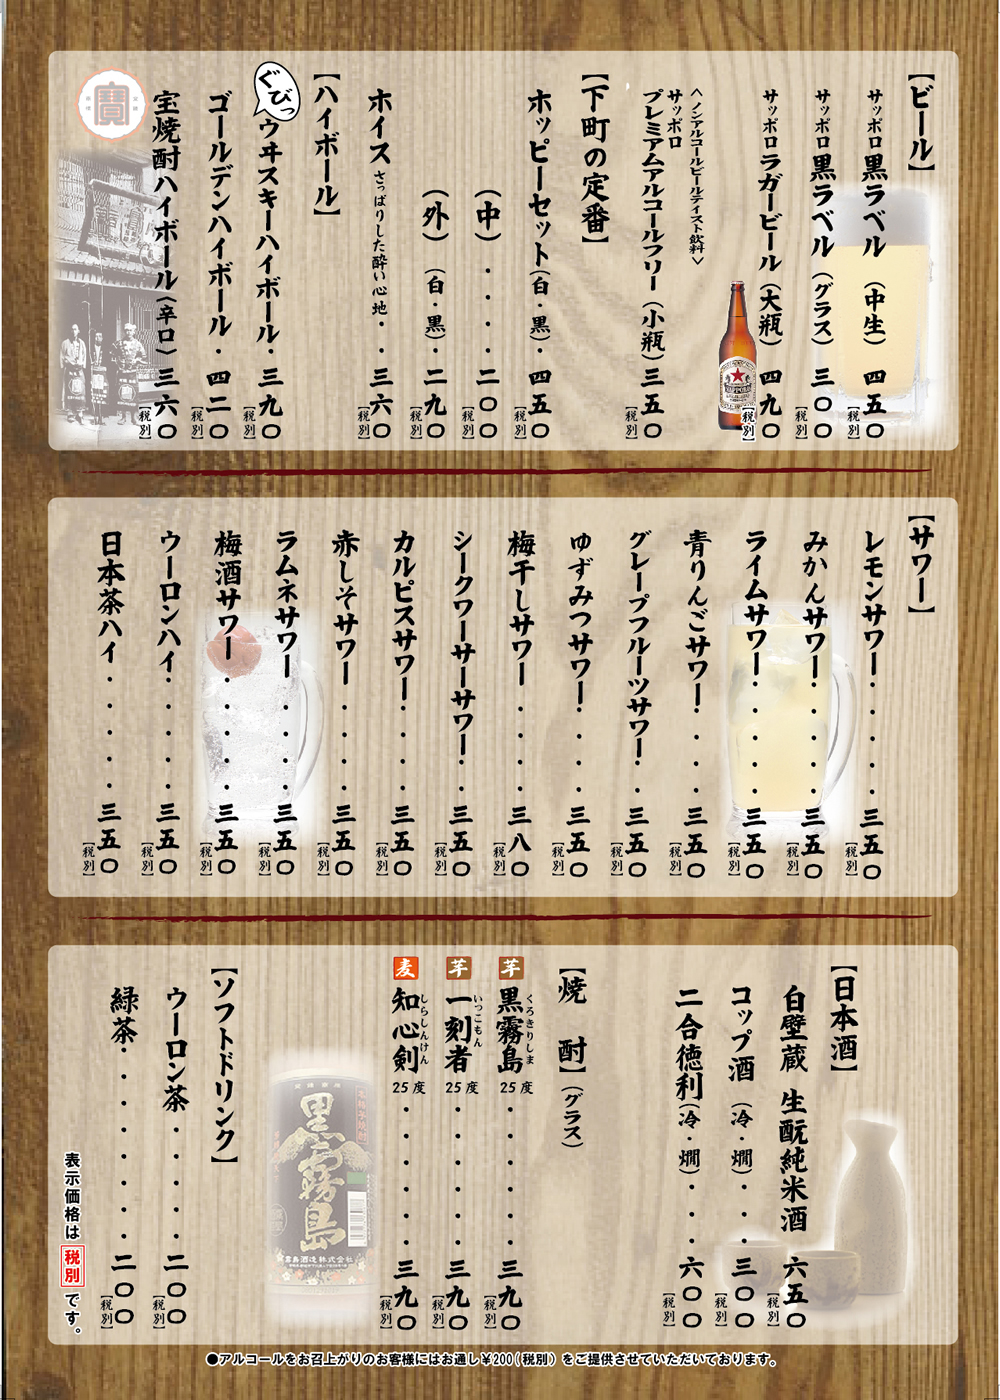 【ビール】
サッポロ黒ラベル（中生）四五〇
［税別］
サッポロ黒ラベル（グラス）三一〇
［税別］
サッポロラガービール（大瓶）四九〇
［税別］
＜ノンアルコールビールテイスト飲料＞
サッポロ
プレミアムアルコールフリー（小瓶）三五〇
［税別］
【下町の定番】
ホッピーセット（白・黒）・四五〇
［税別］
（中）・・・・二〇〇
［税別］
（外）（白・黒）・二九〇
［税別］
ホイスさっぱりした酔い心地・・三六〇
［税別］
【ハイボール】
ぐびっ
ウヰスキーハイボール・三九〇
［税別］
ゴールデンハイボール・四二〇
［税別］
宝焼酎ハイボール（辛口）三六〇
［税別］
寶
【サワー】
レモンサワー・・・・・三五〇
［税別］
みかんサワー・・・・・三五〇
［税別］
ライムサワー・・・・・三五〇
［税別］
青りんごサワー・・・・三五〇
［税別］
グレープフルーツサワー・・三五〇
［税別］
ゆずみつサワー・・・・三五〇
［税別］
梅干しサワー・・・・・三八〇
［税別］
シークワーサーサワー・・三五〇
［税別］
カルピスサワー・・・・三五〇
［税別］
赤しそサワー・・・・三五〇
［税別］
ラムネサワー・・・・三五〇
［税別］
梅酒サワー・・・・・三五〇
［税別］
ウーロンハイ・・・・・三五〇
［税別］
日本茶ハイ・・・・・三五〇
［税別］
【日本酒】
白壁蔵 生酛純米酒 六五〇
［税別］
コップ酒（冷・燗）・・三〇〇
［税別］
二合徳利（冷・燗）・・・六〇〇
［税別］
【焼酎】（グラス）
芋 黒霧島 25度・・・・・・三九〇
くろきりしま
［税別］
芋 一刻者 25度・・・・・・三九〇
いっこもん
［税別］
麦 知心剣 25度・・・・・・三九〇
しらしんけん
［税別］
黒霧島
霧島酒造株式会社
【ソフトドリンク】
ウーロン茶・・・・・二〇〇
［税別］
緑茶・・・・・・・・二〇〇
［税別］
表示価格は税別です。
●アルコールをお召上がりのお客様にはお通し¥200（税別）をご提供させていただいております。